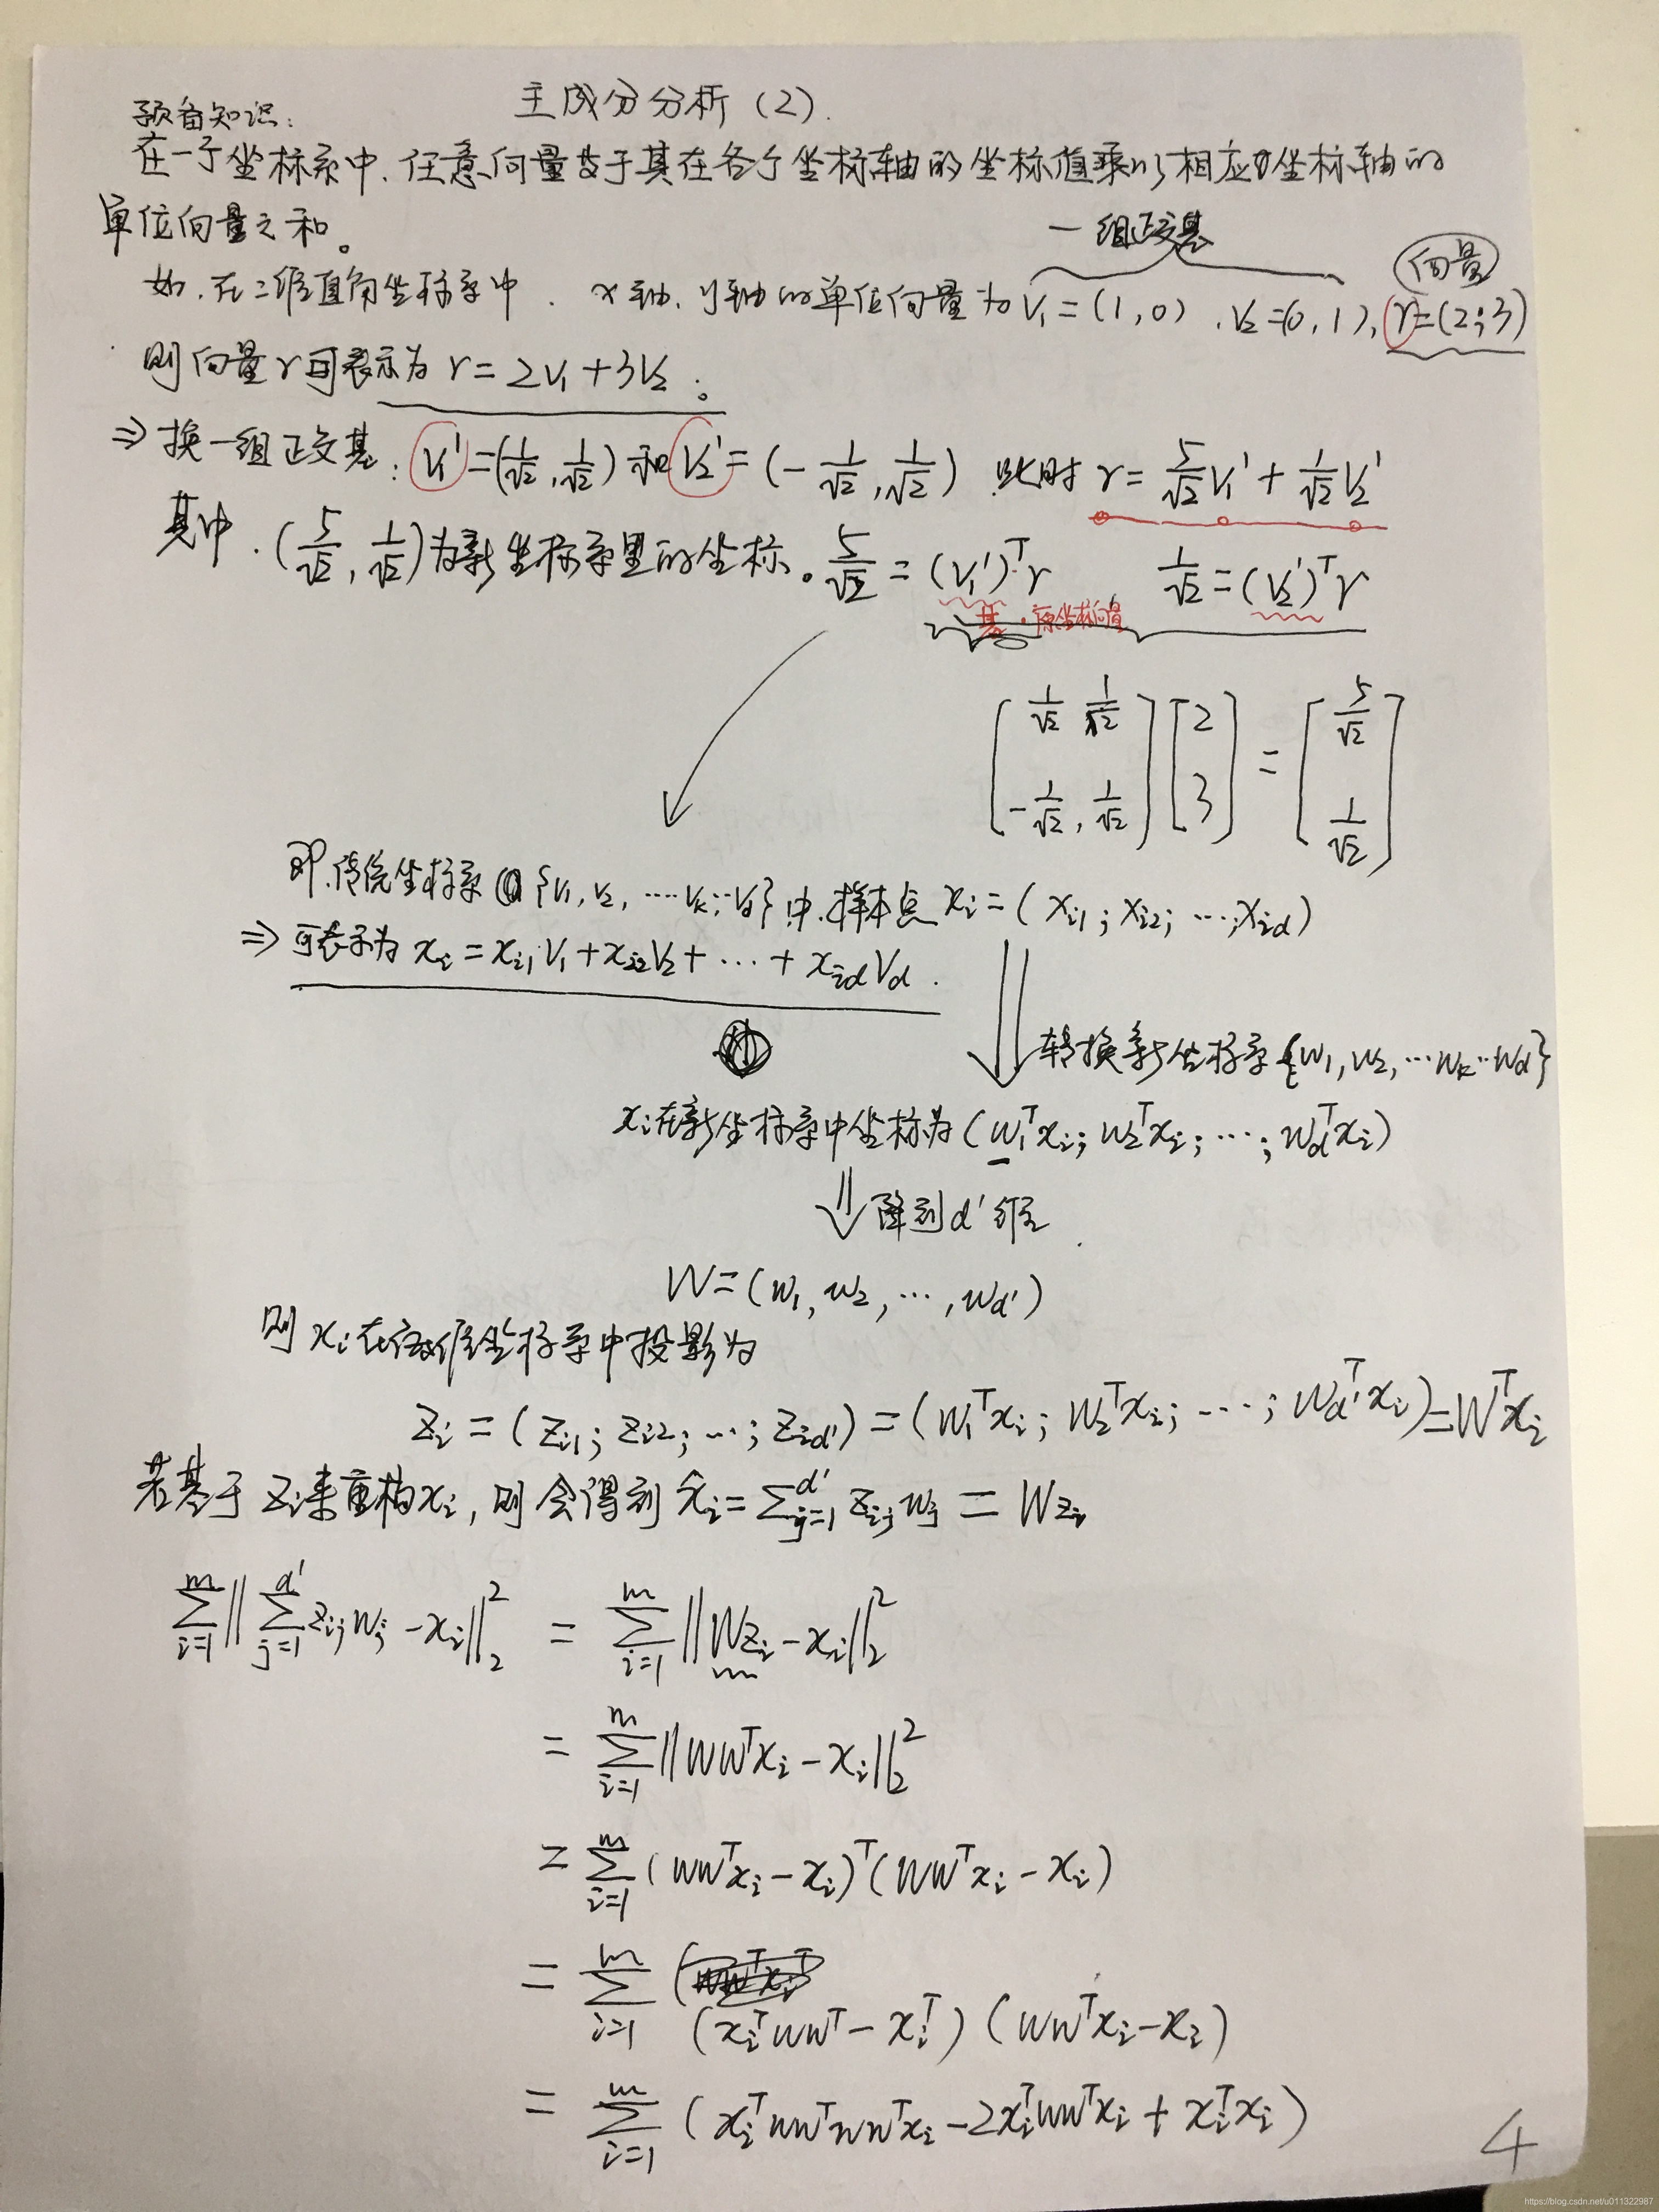 主成分分析（2）.
预备知识:
在一个坐标系中.任意向量等于其在各个坐标轴的坐标值乘以相应的坐标轴的
单位向量之和。
一组正交基
向量
如.在二维直角坐标系中. x轴、y轴的单位向量为 v₁=(1,0), v₂=(0,1), r=(2;3)
则向量r可表示为 r=2v₁+3v₂。
⇒ 换一组正交基: v₁'=(1/√2, 1/√2) 和 v₂'=(-1/√2, 1/√2) 此时 r=5/√2 v₁' + 1/√2 v₂'
其中.(5/√2, 1/√2)为新坐标系里的坐标。5/√2=(v₁')ᵀ·r 1/√2=(v₂')ᵀr
基·原坐标向量
[1/√2 1/√2; -1/√2, 1/√2] [2; 3] = [5/√2; 1/√2]
即.传统坐标系{v₁,v₂,····vₖ;··v_d}中.样本点 xᵢ=(x_i1; x_i2; ···; x_id)
⇒ 可表示为 xᵢ=x_i1 v₁+x_i2 v₂+···+x_id v_d.
转换新坐标系{w₁,w₂,···wₖ··w_d}
xᵢ在新坐标系中坐标为(w₁ᵀxᵢ; w₂ᵀxᵢ; ···; w_dᵀxᵢ)
降到d'维
W=(w₁,w₂,···,w_d')
则 xᵢ在低维坐标系中投影为
zᵢ=(z_i1; z_i2; ···; z_id')=(w₁ᵀxᵢ; w₂ᵀxᵢ; ···; w_d'ᵀxᵢ)=Wᵀxᵢ
若基于zᵢ来重构xᵢ, 则会得到 x̂ᵢ=∑_{j=1}^{d'} z_ij w_j = Wzᵢ
∑_{i=1}^{m} ‖∑_{j=1}^{d'} z_ij w_j - xᵢ‖₂² = ∑_{i=1}^{m} ‖Wzᵢ-xᵢ‖₂²
= ∑_{i=1}^{m} ‖WWᵀxᵢ-xᵢ‖₂²
= ∑_{i=1}^{m} (WWᵀxᵢ-xᵢ)ᵀ(WWᵀxᵢ-xᵢ)
= ∑_{i=1}^{m} (xᵢᵀWWᵀ-xᵢᵀ)(WWᵀxᵢ-xᵢ)
= ∑_{i=1}^{m} (xᵢᵀWWᵀWWᵀxᵢ-2xᵢᵀWWᵀxᵢ+xᵢᵀxᵢ)
4
https://blog.csdn.net/u011322987